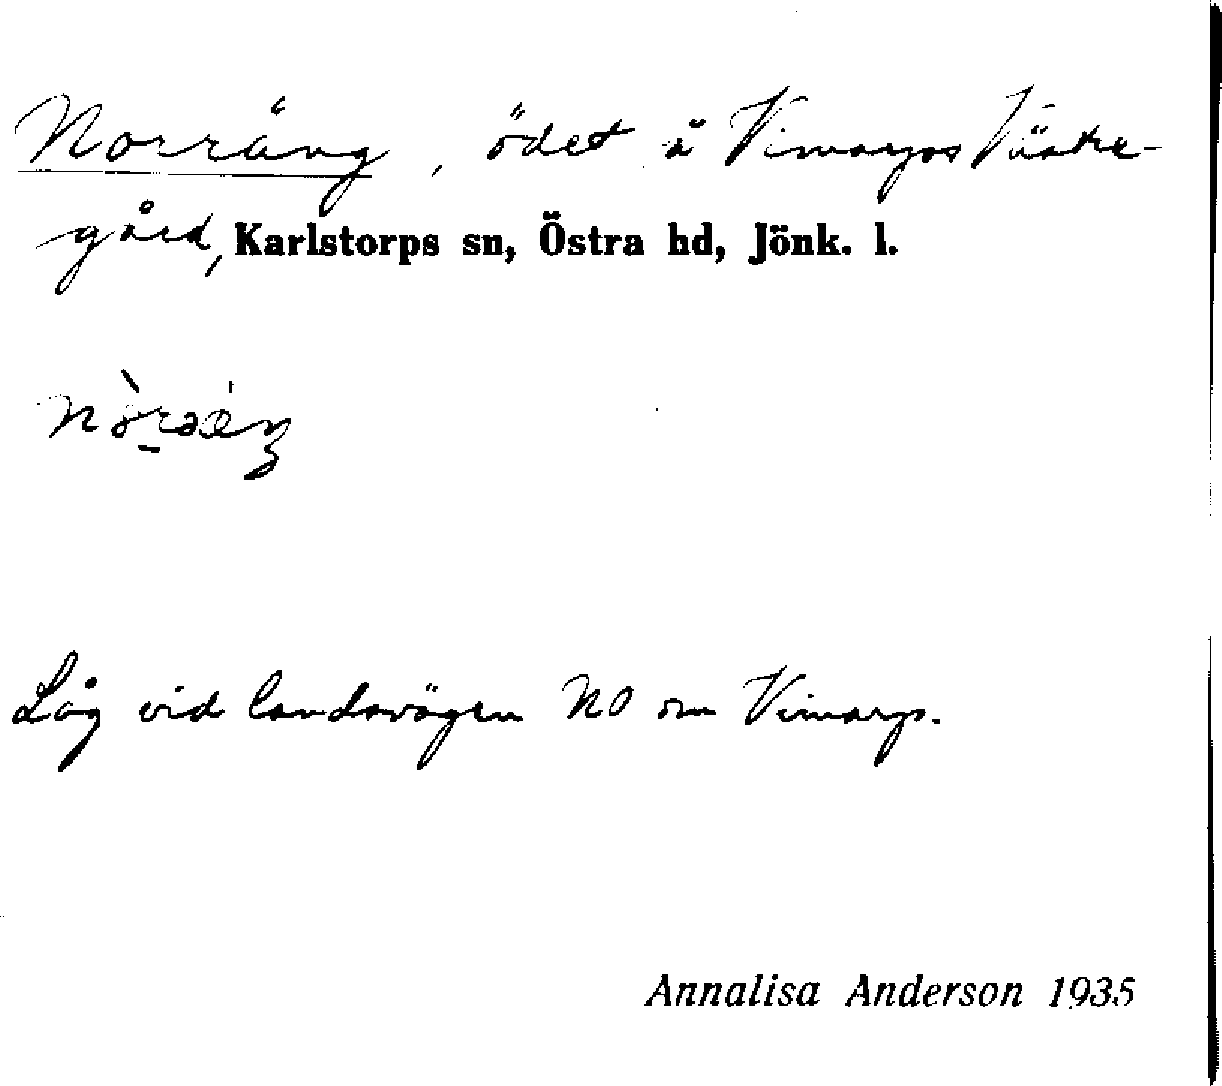 Norräng, ödet å Vimarps Västre-
gård, Karlstorps sn, Östra hd, Jönk. l.
Låg vid landsvägen NO om Vimarp.
Annalisa Anderson 1935